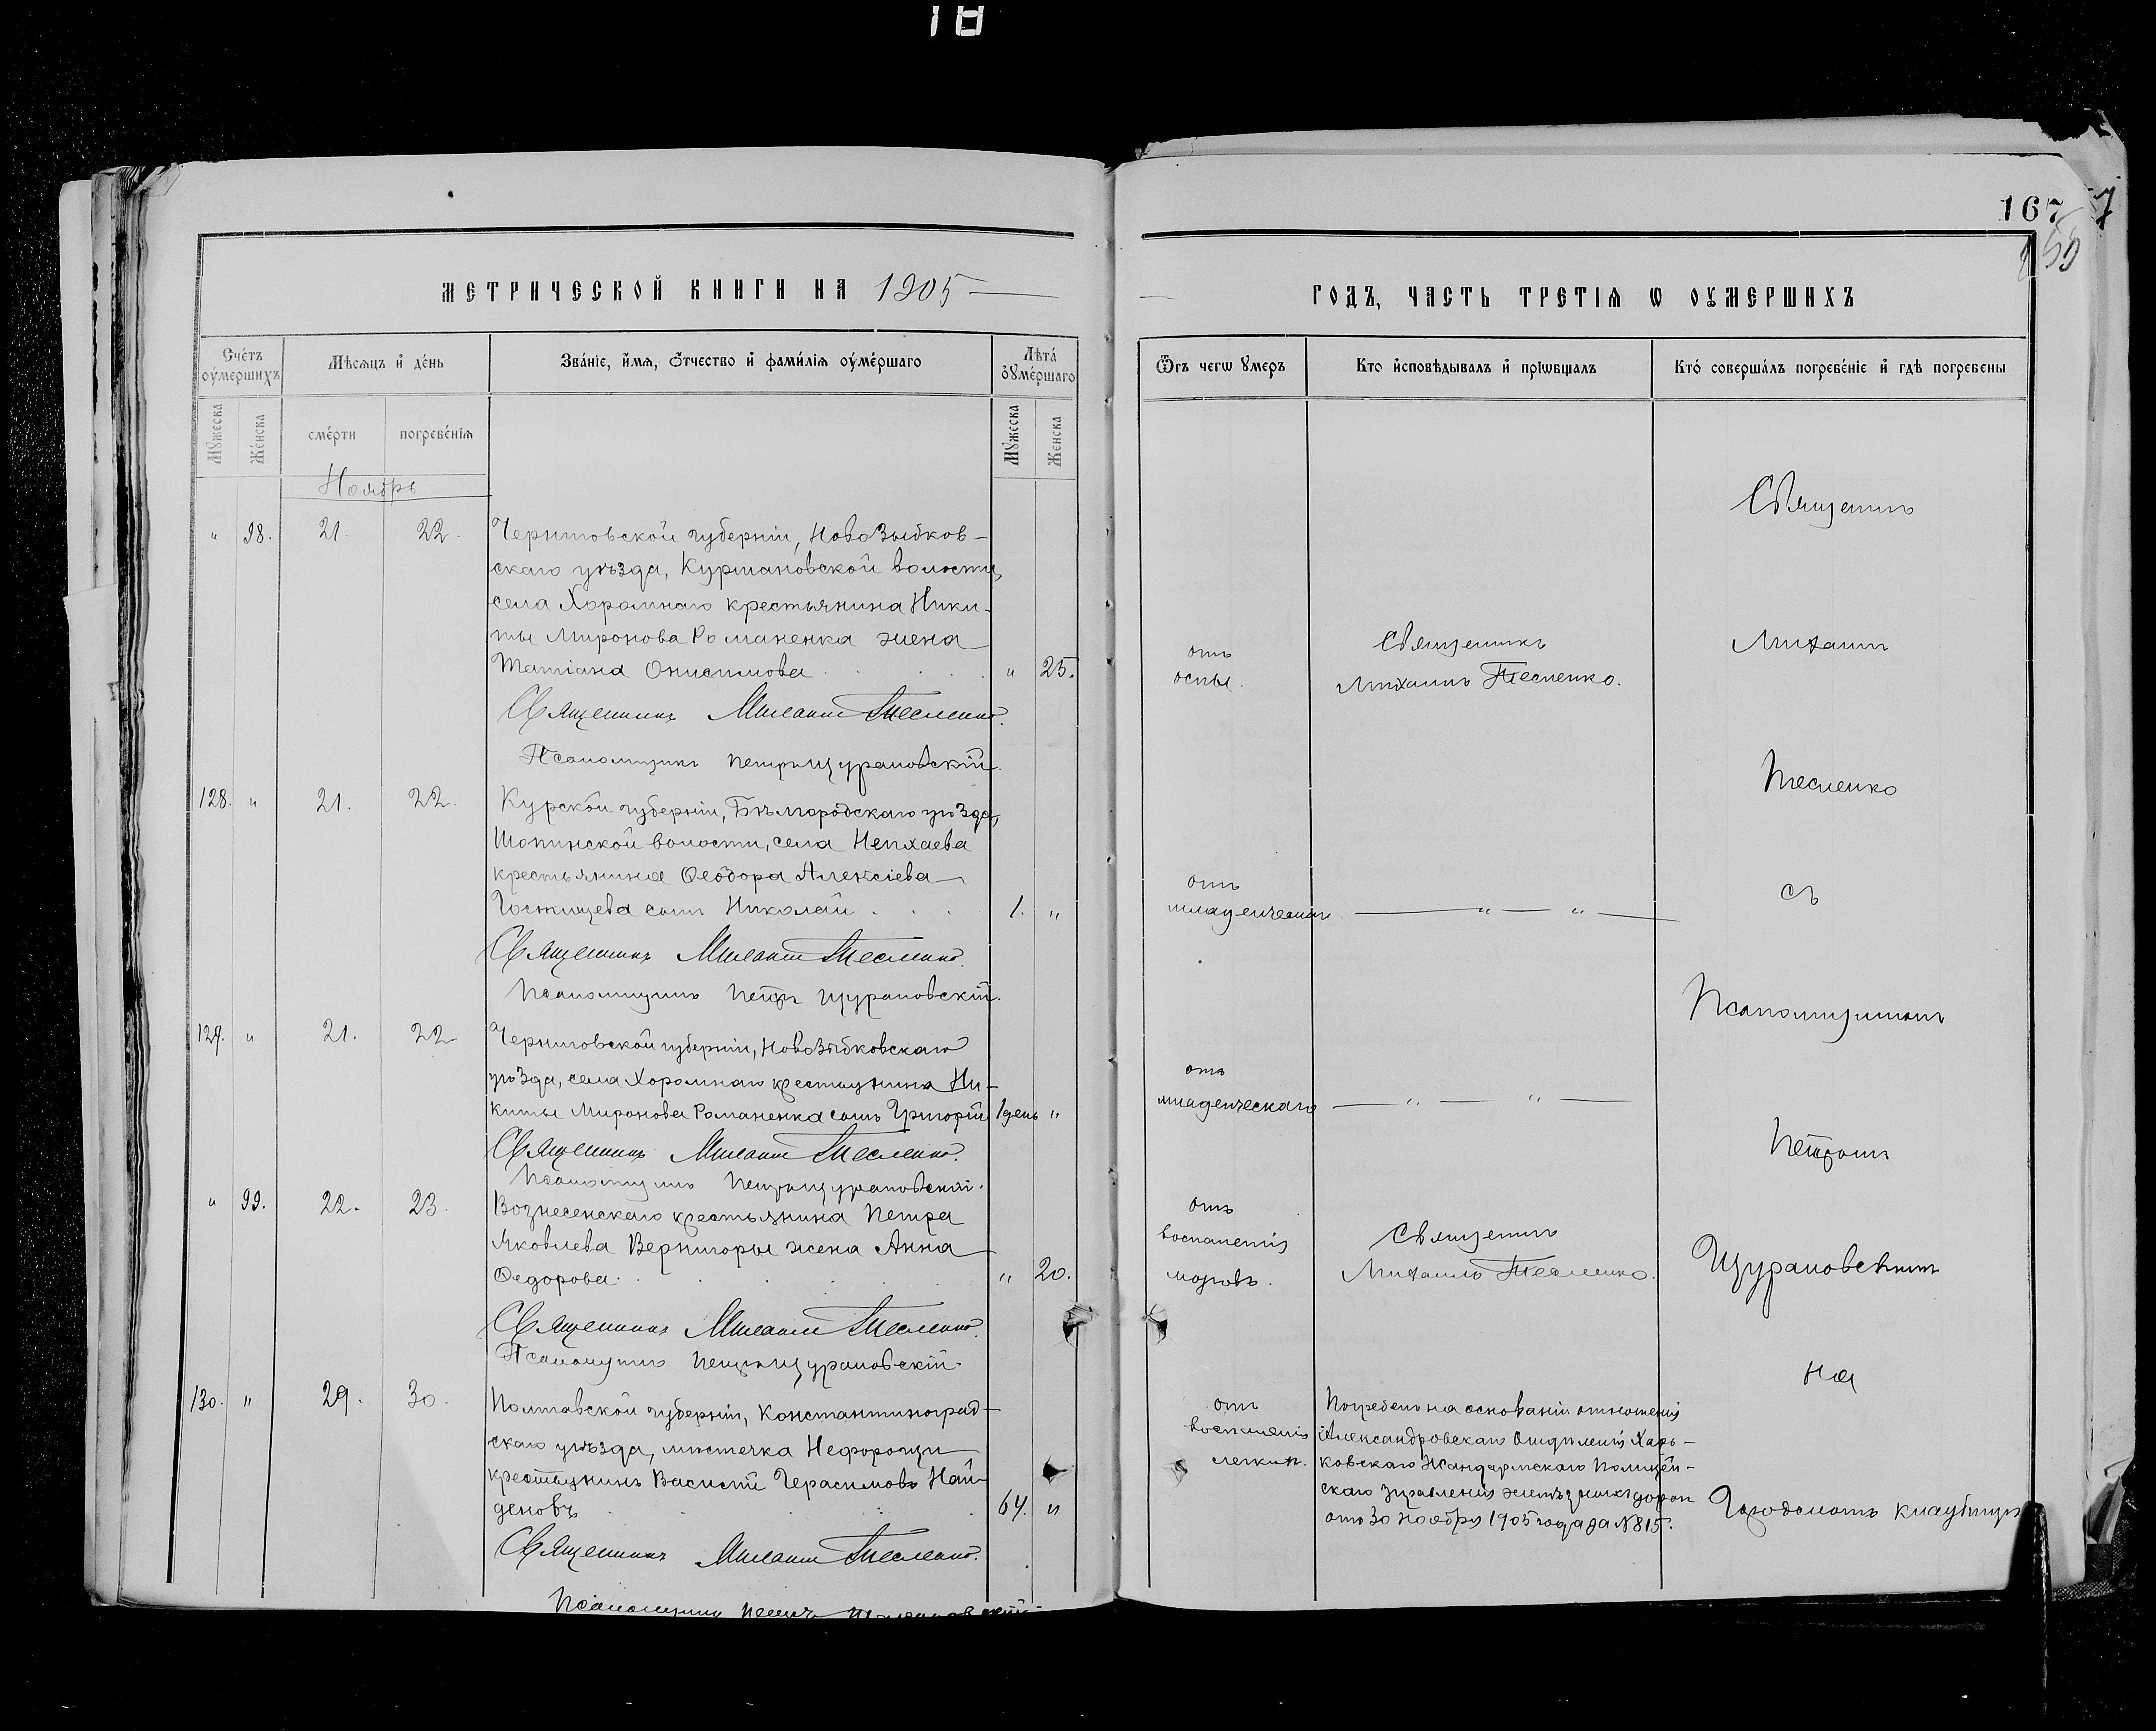 18
167
МЕТРИЧЕСКОЙ КНИГИ НА 1905
Счетъ оумершихъ
Мѣсяцъ и день
Званіе, имя, отчество и фамилія оумершаго
Лѣта оумершаго
Мужеска
Женска
смерти
погребенія
Мужеска
Женска
Ноябрь
" 98. 21. 22. Черниговской губерніи, Новозыбков-
скаго уѣзда, Курмановской волости,
села Хоромнаго крестьянина Ники-
ты Миронова Романенка жена
Татіана Онисимова " 25.
Священникъ Михаилъ Тесленко.
Псаломщикъ Петръ Щурановскій.
128. " 21. 22. Курской губерніи, Бѣлгородскаго уѣзда,
Шопинской волости, села Непхаева
крестьянина Ѳеодора Алексіева
Гостищева сынъ Николай 1. "
Священникъ Михаилъ Тесленко.
Псаломщикъ Петръ Щурановскій.
129. " 21. 22 Черниговской губерніи, Новозыбковскаго
уѣзда, села Хоромнаго крестьянина Ни-
киты Миронова Романенка сынъ Григорій 1 день "
Священникъ Михаилъ Тесленко.
Псаломщикъ Петръ Щурановскій.
" 99. 22. 23. Вознесенскаго крестьянина Петра
Яковлева Вернигоры жена Анна
Ѳедорова " 20.
Священникъ Михаилъ Тесленко.
Псаломщикъ Петръ Щурановскій.
130. " 29. 30. Полтавской губерніи, Константиноград-
скаго уѣзда, мѣстечка Нефорощи
крестьянинъ Василій Герасимовъ Най-
деновъ 64. "
Священникъ Михаилъ Тесленко.
Псаломщикъ Петръ Щурановскій.
ГОДЪ, ЧАСТЬ ТРЕТІЯ Ѡ ОУМЕРШИХЪ
Ѿъ чегѡ умеръ
Кто исповѣдывалъ и пріѡбщалъ
Кто совершалъ погребеніе и гдѣ погребены
отъ
оспы.
Священникъ
Михаилъ Тесленко.
отъ
младенческаго " "
отъ
младенческаго " "
отъ
воспаленія
мозговъ.
Священникъ
Михаилъ Тесленко.
отъ
воспаленія
легкихъ.
Погребенъ на основаніи отношенія
Александровскаго Отдѣленія Харь-
ковскаго Жандармскаго Полицей-
скаго Управленія желѣзныхъ дорогъ
отъ 30 Ноября 1905 года за № 815.
Священникъ
Михаилъ
Тесленко
съ
Псаломщикомъ
Петромъ
Щурановскимъ
на
кладбищѣ